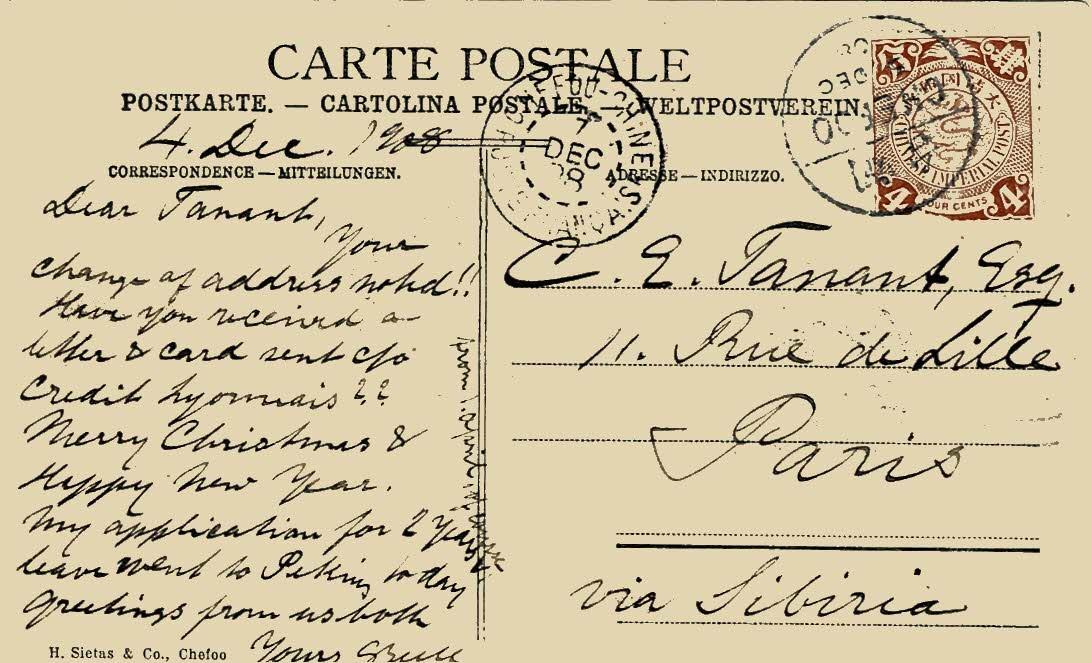 CARTE POSTALE
POSTKARTE. — CARTOLINA POSTALE — WELTPOSTVEREIN.
4. Dec. 1908
CORRESPONDENCE — MITTEILUNGEN.
Dear Tanant,
Your
change of address noted!!
Have you received a
letter & card sent c/o
Credit Lyonnais ??
Merry Christmas &
Happy New Year.
My application for 2 years
leave went to Peking to day
Greetings from us both
Yours
H. Sietas & Co., Chefoo
CHEFOU-CHINE
7
DEC
08
ADRESSE — INDIRIZZO.
IMPERIAL POST
FOUR CENTS
4 4
C. E. Tanant, Esq.
11. Rue de Lille
Paris
via Sibiria